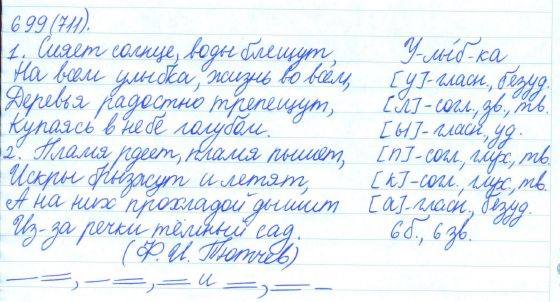 699(711).
1. Сияет солнце, воды блещут,
На всём улыбка, жизнь во всём,
Деревья радостно трепещут,
Купаясь в небе голубом.
2. Пламя рдеет, пламя пышет,
Искры брызжут и летят,
А на них прохладой дышит
Из-за речки тёмный сад.
(Ф. И. Тютчев)
и
У-лы́б-ка
[у]-гласн., безуд.
[л]-согл., зв., тв.
[ы]-гласн., уд.
[п]-согл., глух., тв.
[к]-согл., глух., тв.
[а]-гласн., безуд.
6б., 6зв.